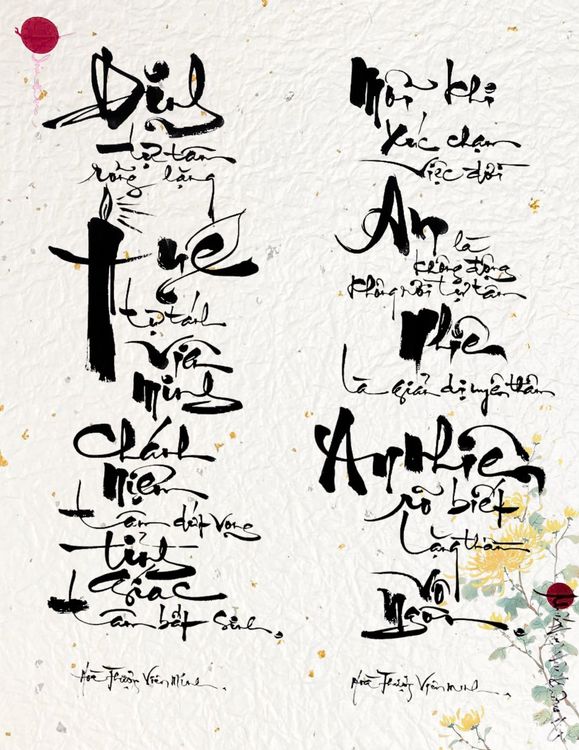 Định
tự tâm
rỗng lặng
Tuệ
tự tánh
Viên
minh
Chánh
Niệm
tâm dứt vọng
tỉnh
giác
tâm bất sinh.
Hoà Thượng Viên Minh.
Mỗi khi
xúc chạm
việc đời
An là
không động
không rời tự tâm
Nhiên
là giản dị uyên thâm
An Nhiên
rõ biết
lặng thầm
vô
ngôn.
Hoà Thượng Viên Minh.